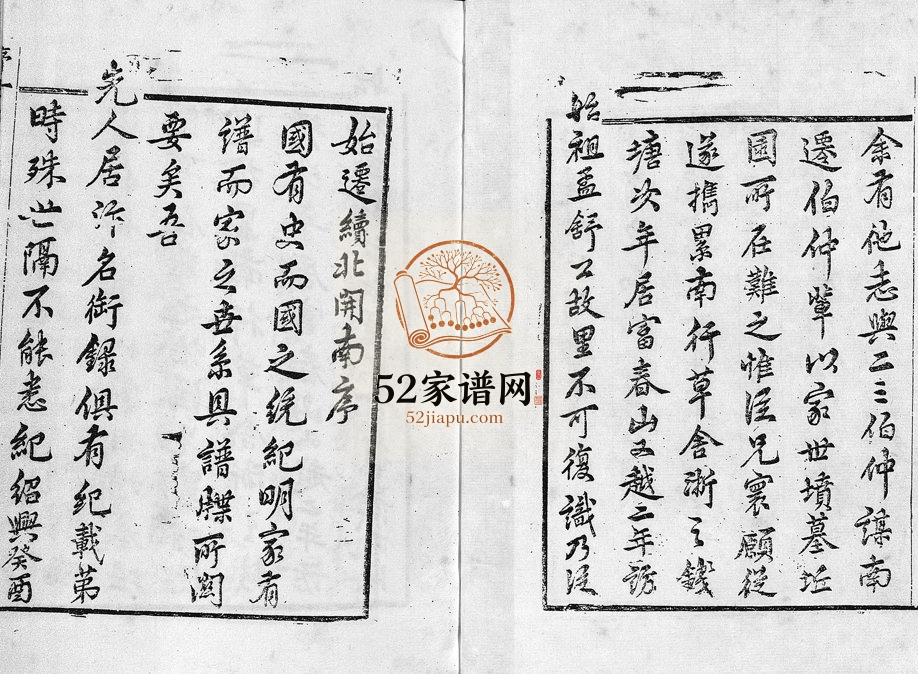 始遷續北開南序
國有史而國之統紀明家有
譜而家之世系具譜牒所関
要矣吾
先人居汴名銜錄俱有紀載第
時殊世隔不能悉紀紹興癸酉
余有他志與二三伯仲謀南
遷伯仲輩以家世墳墓坵
園所在難之惟従兄寰願従
遂携累南行草舎浙之錢
塘次年居富春山又越二年訪
始祖孟舒公故里不可復識乃従
52家谱网
52jiapu.com